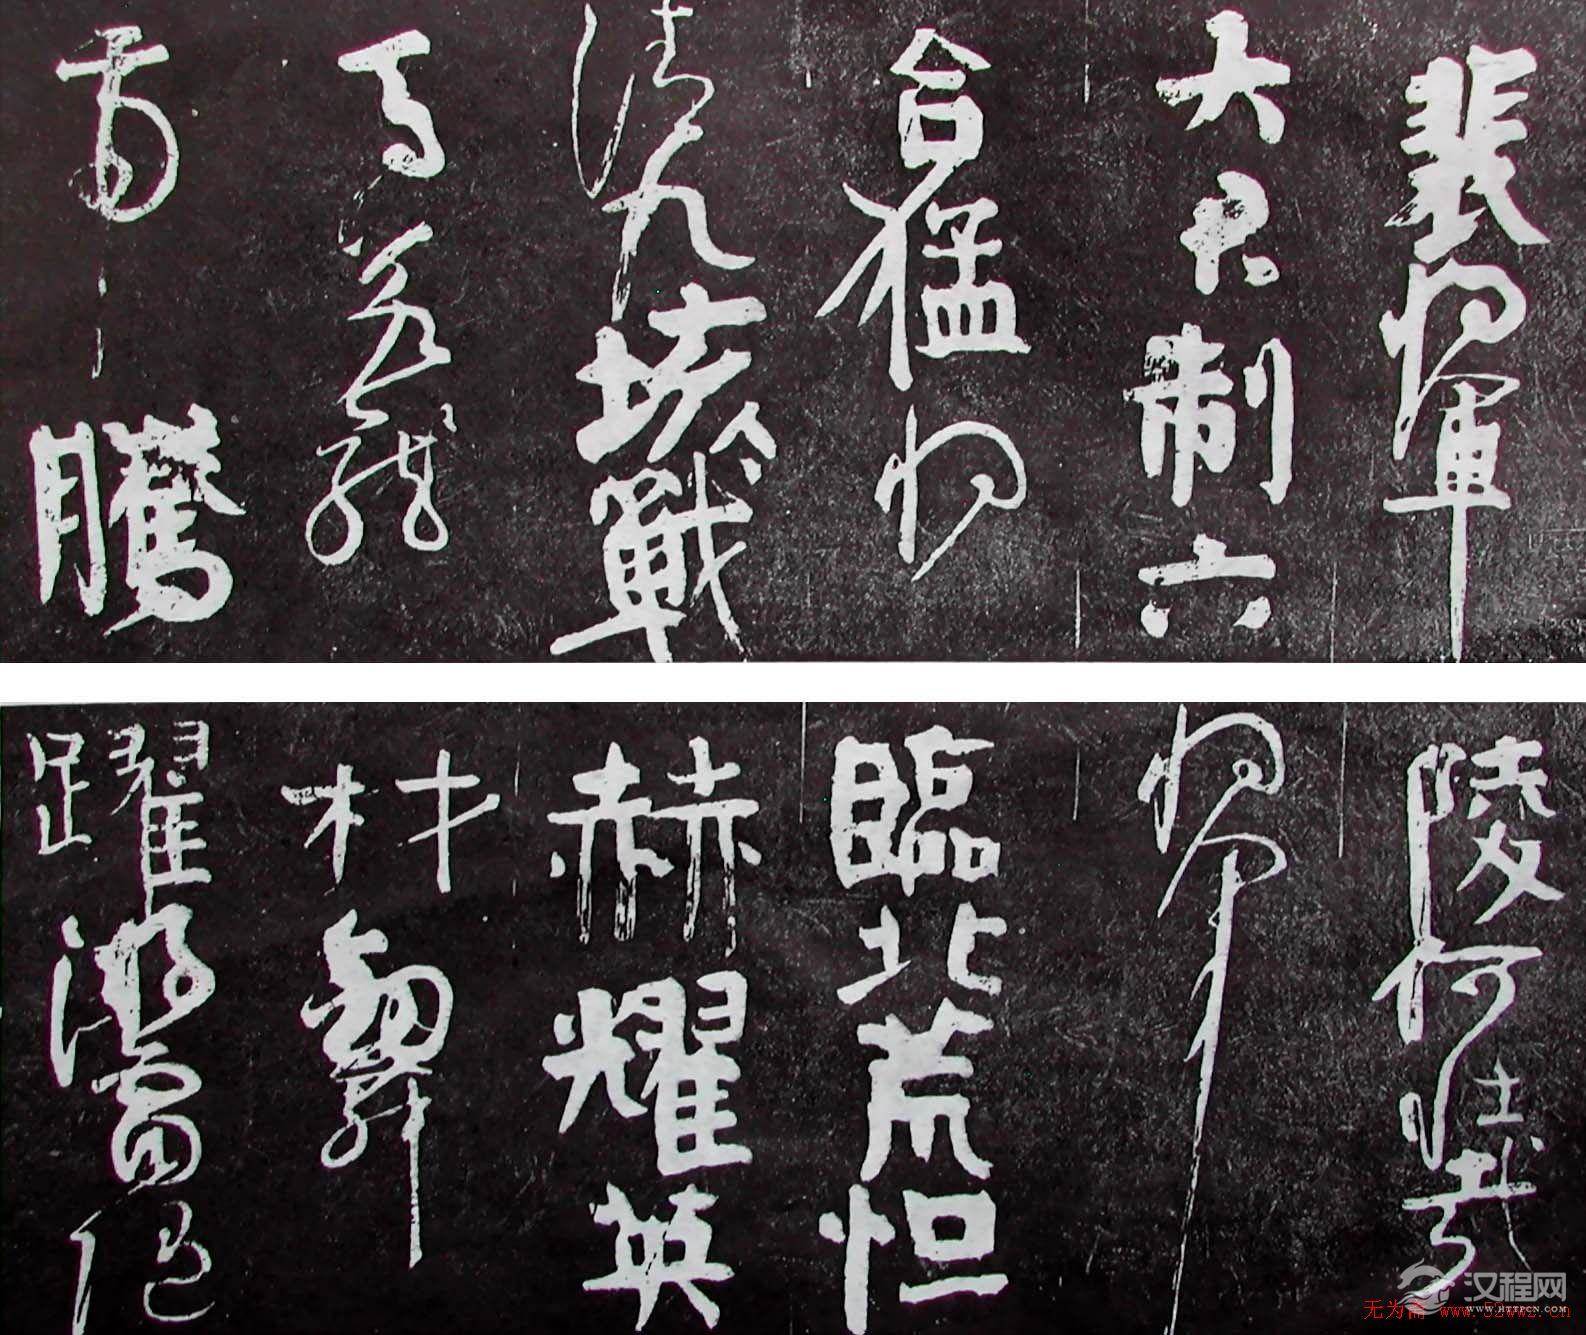 裴將軍
大君制六
合猛將
清九垓戰
馬若龍
虎騰
陵何壯哉
將軍
臨北荒恒
赫耀英
材劍舞
躍游電隨
汉程网
WWW.HTTPCN.COM
无为斋 www.52wwz.cn